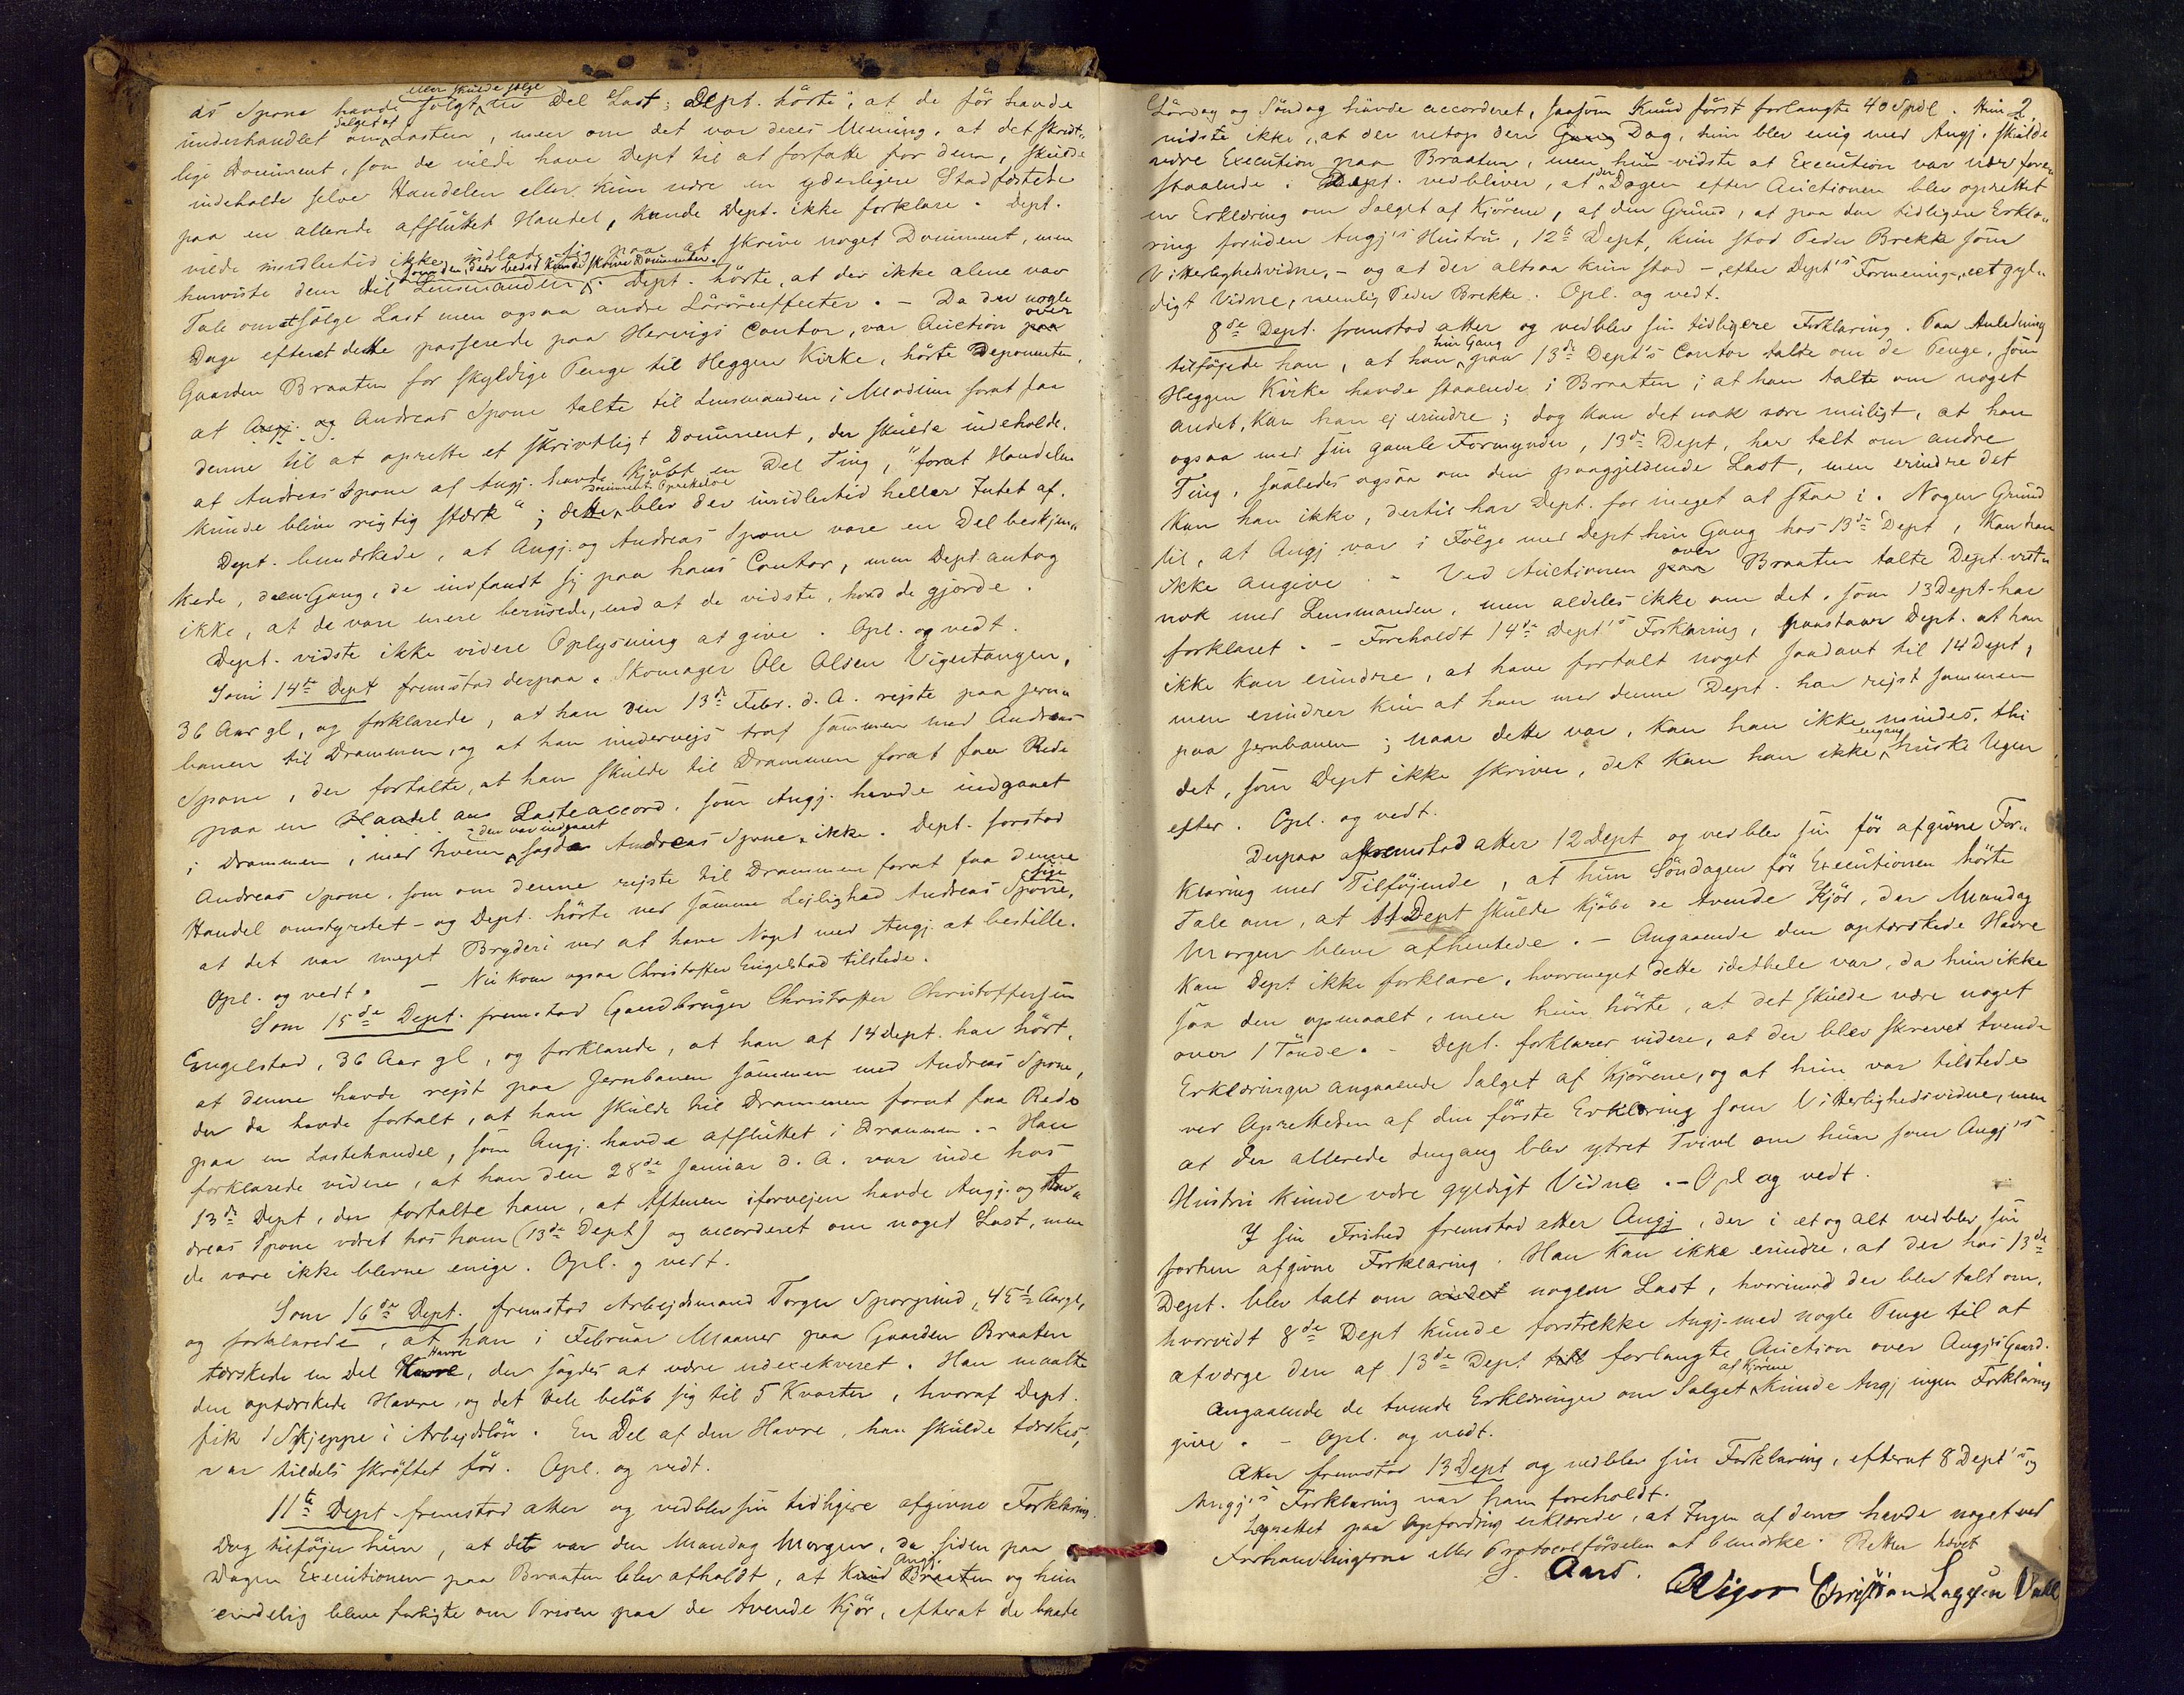 as Spone havde solgt eller skulde sælge en Del Last; Dept. hörte, at de för havde
underhandlet om Salget af Lasten, men om det var deres Mening, at det skrift-
lige Document, som de vilde have Dept til at forfatte for dem, skulde
indeholde selve Handelen eller kun være en yderligere Stadfæstelse
paa en allerede afsluttet Handel, kunde Dept. ikke forklare. Dept.
vilde imidlertid ikke indlade sig paa at skrive noget Document, men
henviste dem til Lensmanden som den, der bedst kunde skrive Documenter. Dept. hörte, at der ikke alene var
Tale om at sælge Last men ogsaa andre Lösöreeffecter. - Da der nogle
Dage efterat dette passerede paa Hervigs Contor, var Auction paa over
Gaarden Braaten for skyldige Penge til Heggen Kirke, hörte Deponenten,
at Angj. og Andreas Spone talte til Lensmanden i Modum forat faa
denne til at oprette et skrivtligt Document, der skulde indeholde,
at Andreas Spone af Angj. havde kjöbt en Del Ting, "forat Handelen
kunde blive rigtig stærk"; dette Documents Oprettelse blev der imidlertid heller Intet af.
Dept. bemærkede, at Angj. og Andreas Spone vare en Del beskjæn-
kede, den Gang, de indfandt sig paa hans Contor, men Dept antog
ikke, at de vare mere berusede, end at de vidste, hvad de gjorde.
Dept. vidste ikke videre Oplysning at give. Opl. og vedt.
Som 14de Dept fremstod derpaa Skomager Ole Olsen Vigertangen,
36 Aar gl, og forklarede, at han den 13de Febr. d. A. rejste paa Jern-
banen til Drammen, og at han undervejs traf sammen med Andreas
Spone, der fortalte, at han skulde til Drammen forat faa Rede
paa en Handel am Lasteaccord, som Angj. havde indgaaet
i Drammen, med hvem den var indgaaet sagde Andreas Spone ikke. Dept. forstod
Andreas Spone, som om denne rejste til Drammen forat faa denne
Handel omstyrtet - og Dept. hörte ved samme Lejlighed Andreas Spone sige,
at det var meget Bryderi ved at have Noget med Angj. at bestille.
Opl. og vedt. - Nu kom ogsaa Christoffer Engelstad tilstede.
Som 15de Dept. fremstod Gaardbruger Christoffer Christoffersen
Engelstad, 36 Aar gl, og forklarede, at han af 14 dept. har hört,
at denne havde rejst paa Jernbanen sammen med Andreas Spone,
der da havde fortalt, at han skulde til Drammen forat faa Rede
paa en Lastehandel, som Angj. havde afsluttet i Drammen. - Han
forklarede videre, at han den 28de Januar d. A. var inde hos
13de Dept, der fortalte ham, at Aftenen iforvejen havde Angj. og An-
dreas Spone været hos ham (13de Dept) og accorderet om noget Last, men
de vare ikke blevne enige. Opl. og vedt.
Som 16de Dept. fremstod Arbejdsmand Torger Sporpind, 45½ Aar gl,
og forklarede, at han i Februar Maaned paa Gaarden Braaten
tærskede en Del Havre Havre, der sagdes at være udexekveret. Han maalte
den optærskede Havre, og det Hele belöb sig til 5 Kvarter, hvoraf Dept.
fik 1 Skjeppe i Arbejdslön. En Del af den Havre, han skulde tærskes,
var tildels skröftet för. Opl. og vedt.
11te Dept. fremstod atter og vedblev sin tidligere afgivne Forklaring.
Dog tilföjer hun, at det var den Mandag Morgen, da siden paa
Dagen Executionen paa Braaten blev afholdt, at Knud Braaten Angj. og hun
endelig bleve forligte om Prisen paa de tvende Kjör, efterat de baade
2
Lördag og Söndag havde accorderet, saasom Knud först forlangte 40 Spdl. Hun
vidste ikke, at der netop den Gang Dag, hun blev enig med Angj. skulde
være Execution paa Braaten, men hun vidste at Execution var nær fore-
staaende. Dept. vedbliver, at der Dagen efter Auctionen blev oprettet
en Erklæring om Salget af Kjörene, af den Grund, at paa den tidligere Erklæ-
ring foruden Angj's Hustru, 12te Dept, kun stod Peder Brekke som
Vitterlighedsvidne, - og at der altsaa kun stod - efter Dept's Formening - et gyl-
digt Vidne, nemlig Peder Brekke. Opl. og vedt.
8de Dept. fremstod atter og vedblev sin tidligere Forklaring. Paa Anledning
tilföjede han, at han hin Gang paa 13de Dept's Contor talte om de Penge, som
Heggen Kirke havde staaende i Braaten; at han talte om noget
andet, kan han ej erindre; dog kan det nok være muligt, at han
ogsaa med sin gamle Formynder, 13de Dept, har talt om andre
Ting, saaledes ogsaa om den paagjældende Last, men erindre det
kan han ikke, dertil har Dept. for meget at staa i. Nogen Grund
til, at Angj var i Fölge med Dept hin Gang hos 13de Dept, kan han
ikke angive. - Ved Auctionen paa over Braaten talte Dept. vist-
nok med Lensmanden, men aldeles ikke om det, som 13 Dept. har
forklaret. - Foreholdt 14de Dept's Forklaring, paastaar Dept. at han
ikke kan erindre, at have fortalt noget saadant til 14 Dept,
men erindrer kun at han med denne Dept. har rejst sammen
paa Jernbanen; naar dette var, kan han ikke mindes, thi
det, som Dept ikke skriver, det kan han ikke engang huske Ugen
efter. Opl. og vedt.
Derpaa fremstod atter 12 Dept og vedblev sin för afgivne For-
klaring med Tilföjende, at hun Söndagen för Executionen hörte
Tale om, at 11 Dept skulde kjöbe de tvende Kjör, der Mandag
Morgen bleve afhentede. - Angaaende den optærskede Havre
kan Dept ikke forklare, hvormeget dette idethele var, da hun ikke
saa den opmaalt, men hun hörte, at det skulde være noget
over 1 Tönde. - Dept. forklarer videre, at der blev skrevet tvende
Erklæringer angaaende Salget af Kjörene, og at hun var tilstede
ved Oprettelsen af den förste Erklæring som Vitterlighedsvidne, men
at der allerede dengang blev ytret Tvivl om hun som Angj's
Hustru kunde være gyldigt Vidne. - Opl og vedt.
I sin Frihed fremstod atter Angj, der i et og alt vedblev sin
forhen afgivne Forklaring. Han kan ikke erindre, at der hos 13de
Dept. blev talt om andet nogen Last, hvorimod der blev talt om,
hvorvidt 8de Dept kunde forstrække Angj. med nogle Penge til at
afværge den af 13de Dept forlangte Auction over Angj's Gaard.
Angaaende de tvende Erklæringer om Salget af Kjörene kunde Angj ingen Forklaring
give. - Opl. og vedt.
Atter fremstod 13 Dept og vedblev sin Forklaring, efterat 8 Dept's og
Angj's Forklaring var ham foreholdt.
Lagrettet paa Opfordring erklærede, at Ingen af dem havde noget ved
Forhandlingerne eller Protocolförselen at bemærke. Retten hævet
Aars. Christian